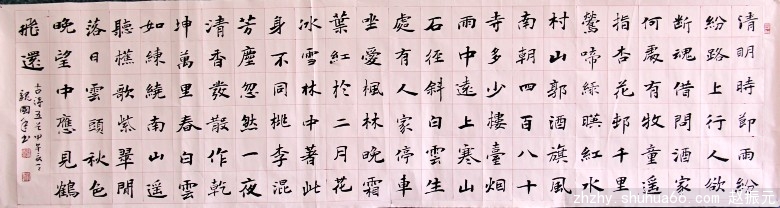 清明時節雨紛
紛路上行人欲
断魂借問酒家
何處有牧童遥
指杏花邨千里
鶯啼緑暎紅水
村山郭酒旗風
南朝四百八十
寺多少樓臺烟
雨中遠上寒山
石徑斜白雲生
處有人家停車
坐愛楓林晚霜
葉紅於二月花
冰雪林中著此
身不同桃李混
芳塵忽然一夜
清香發散作乾
坤萬里春白雲
如練繞南山遥
聽樵歌紫翠間
落日雲頭秋色
晚望中應見鶴
飛還
古詩五首甲午
zhzhy.shuhua66.com 赵振元